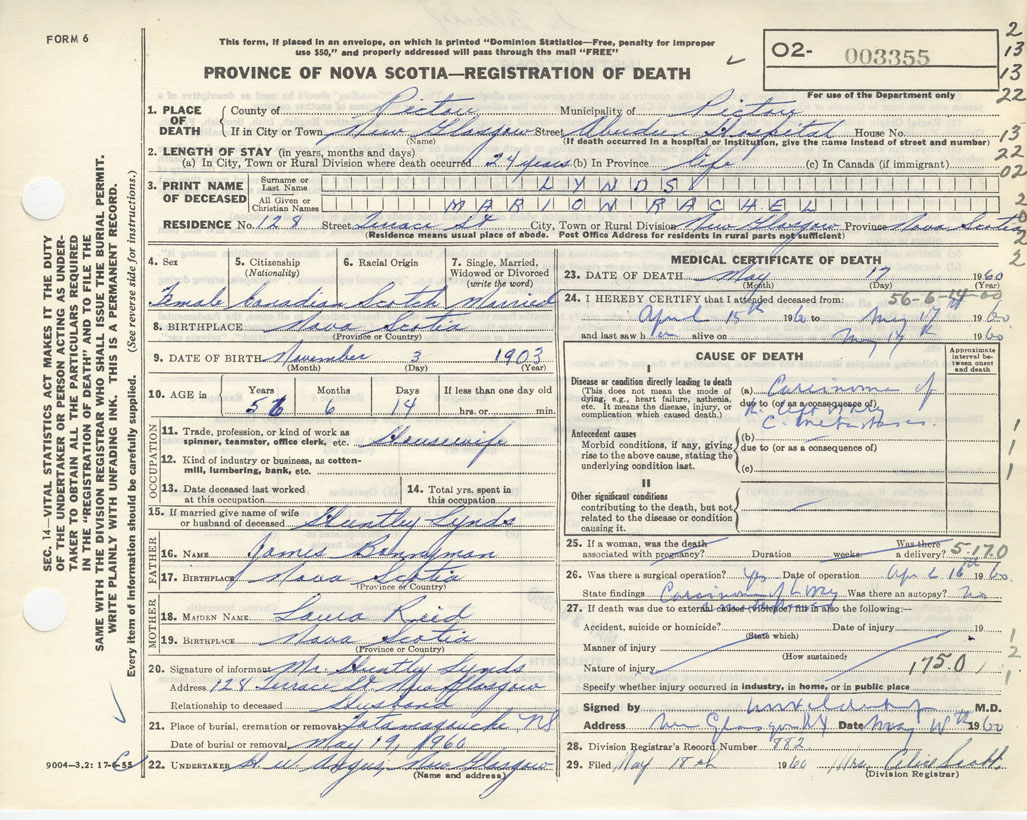 FORM 6
This form, if placed in an envelope, on which is printed "Dominion Statistics—Free, penalty for improper
use $50," and properly addressed will pass through the mail "FREE"
PROVINCE OF NOVA SCOTIA—REGISTRATION OF DEATH
02- 003355
For use of the Department only
2
13
13
22
13
22
02
1. PLACE OF DEATH
County of Pictou Municipality of Pictou
If in City or Town New Glasgow Street Aberdeen Hospital House No.
(Name) (If death occurred in a hospital or institution, give the name instead of street and number)
2. LENGTH OF STAY (in years, months and days)
(a) In City, Town or Rural Division where death occurred 24 years (b) In Province life (c) In Canada (if immigrant)
3. PRINT NAME OF DECEASED
Surname or Last Name LYNDS
All Given or Christian Names MARION RACHEL
RESIDENCE No. 128 Street Terrace St City, Town or Rural Division New Glasgow Province Nova Scotia
(Residence means usual place of abode. Post Office Address for residents in rural parts not sufficient)
4. Sex 5. Citizenship (Nationality) 6. Racial Origin 7. Single, Married, Widowed or Divorced (write the word)
Female Canadian Scotch Married
8. BIRTHPLACE Nova Scotia
(Province or Country)
9. DATE OF BIRTH November 3 1903
(Month) (Day) (Year)
10. AGE in Years Months Days If less than one day old
56 6 14 hrs. or min.
OCCUPATION
11. Trade, profession, or kind of work as spinner, teamster, office clerk, etc. Housewife
12. Kind of industry or business, as cotton-mill, lumbering, bank, etc.
13. Date deceased last worked at this occupation
14. Total yrs. spent in this occupation
15. If married give name of wife or husband of deceased Huntley Lynds
FATHER
16. NAME James Bonnyman
17. BIRTHPLACE Nova Scotia
(Province or Country)
MOTHER
18. MAIDEN NAME Laura Reid
19. BIRTHPLACE Nova Scotia
(Province or Country)
20. Signature of informant Mr. Huntley Lynds
Address 128 Terrace St New Glasgow
Relationship to deceased Husband
21. Place of burial, cremation or removal Tatamagouche NS
Date of burial or removal May 19, 1960
22. UNDERTAKER H W Angus, New Glasgow
(Name and address)
9004—3.2: 17-6-55
MEDICAL CERTIFICATE OF DEATH
23. DATE OF DEATH May 17 1960
(Month) (Day) (Year)
56-6-14
24. I HEREBY CERTIFY that I attended deceased from:
April 15th 1960 to May 17th 1960
and last saw her alive on May 17th 1960
CAUSE OF DEATH
Approximate interval between onset and death
I
Disease or condition directly leading to death
(This does not mean the mode of dying, e.g., heart failure, asthenia, etc. It means the disease, injury, or complication which caused death.)
(a) Carcinoma of
due to (or as a consequence of)
C. metastases.
Antecedent causes
Morbid conditions, if any, giving rise to the above cause, stating the underlying condition last.
(b)
due to (or as a consequence of)
(c)
II
Other significant conditions
contributing to the death, but not related to the disease or condition causing it.
1
1
1
25. If a woman, was the death associated with pregnancy? Duration weeks. Was there a delivery? 5.17.0
26. Was there a surgical operation? Yes Date of operation April 16th 1960
State findings Carcinoma of Was there an autopsy? No
27. If death was due to external causes (violence) fill in also the following:—
Accident, suicide or homicide? Date of injury 19
(State which)
Manner of injury
(How sustained)
Nature of injury 175.0
Specify whether injury occurred in industry, in home, or in public place
Signed by M.D.
Address New Glasgow Date May 18th 1960
28. Division Registrar's Record Number 882
29. Filed May 18th 1960 Mrs. Alice Scott
(Division Registrar)
SEC. 14—VITAL STATISTICS ACT MAKES IT THE DUTY
OF THE UNDERTAKER OR PERSON ACTING AS UNDER-
TAKER TO OBTAIN ALL THE PARTICULARS REQUIRED
IN THE "REGISTRATION OF DEATH" AND TO FILE THE
SAME WITH THE DIVISION REGISTRAR WHO SHALL ISSUE THE BURIAL PERMIT.
WRITE PLAINLY WITH UNFADING INK. THIS IS A PERMANENT RECORD.
Every item of information should be carefully supplied. (See reverse side for instructions.)